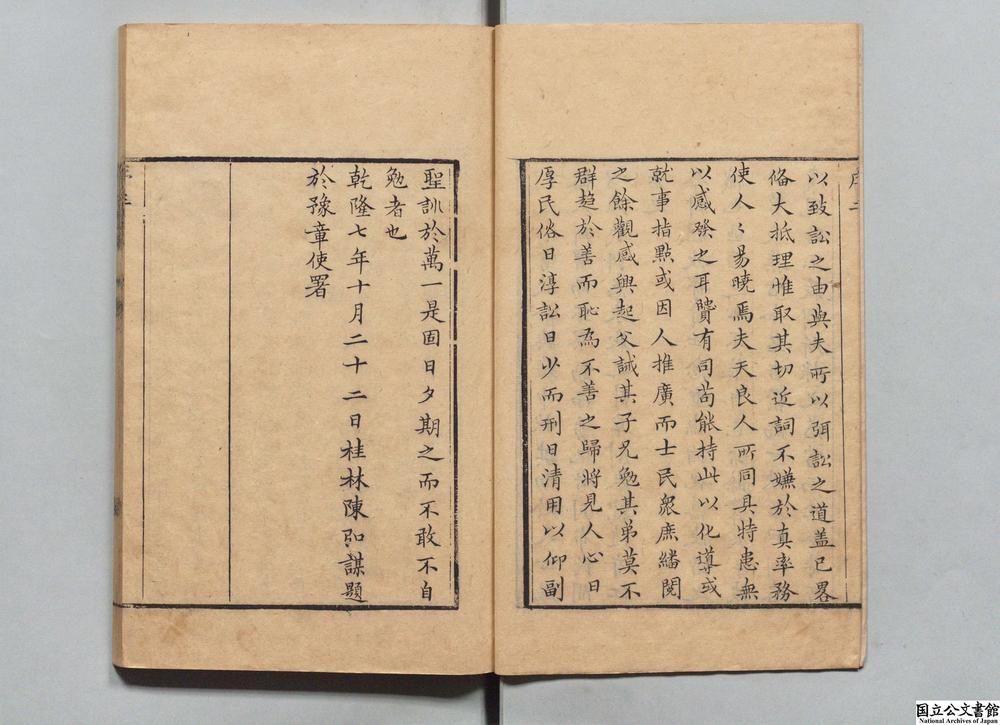 序二
以致訟之由與夫所以弭訟之道盖已畧
俻大抵理惟取其切近詞不嫌於真率務
使人〻易曉焉夫天良人所同具特患無
以感發之耳贒有司苟能持此以化導或
就事指點或因人推廣而士民衆庶繙閱
之餘觀感興起父誡其子兄勉其弟莫不
群趋於善而恥為不善之歸將見人心日
厚民俗日淳訟日少而刑日清用以仰副
聖訓於萬一是固日夕期之而不敢不自
勉者也
乾隆七年十月二十二日桂林陳弘謀題
於豫章使署
国立公文書館
National Archives of Japan